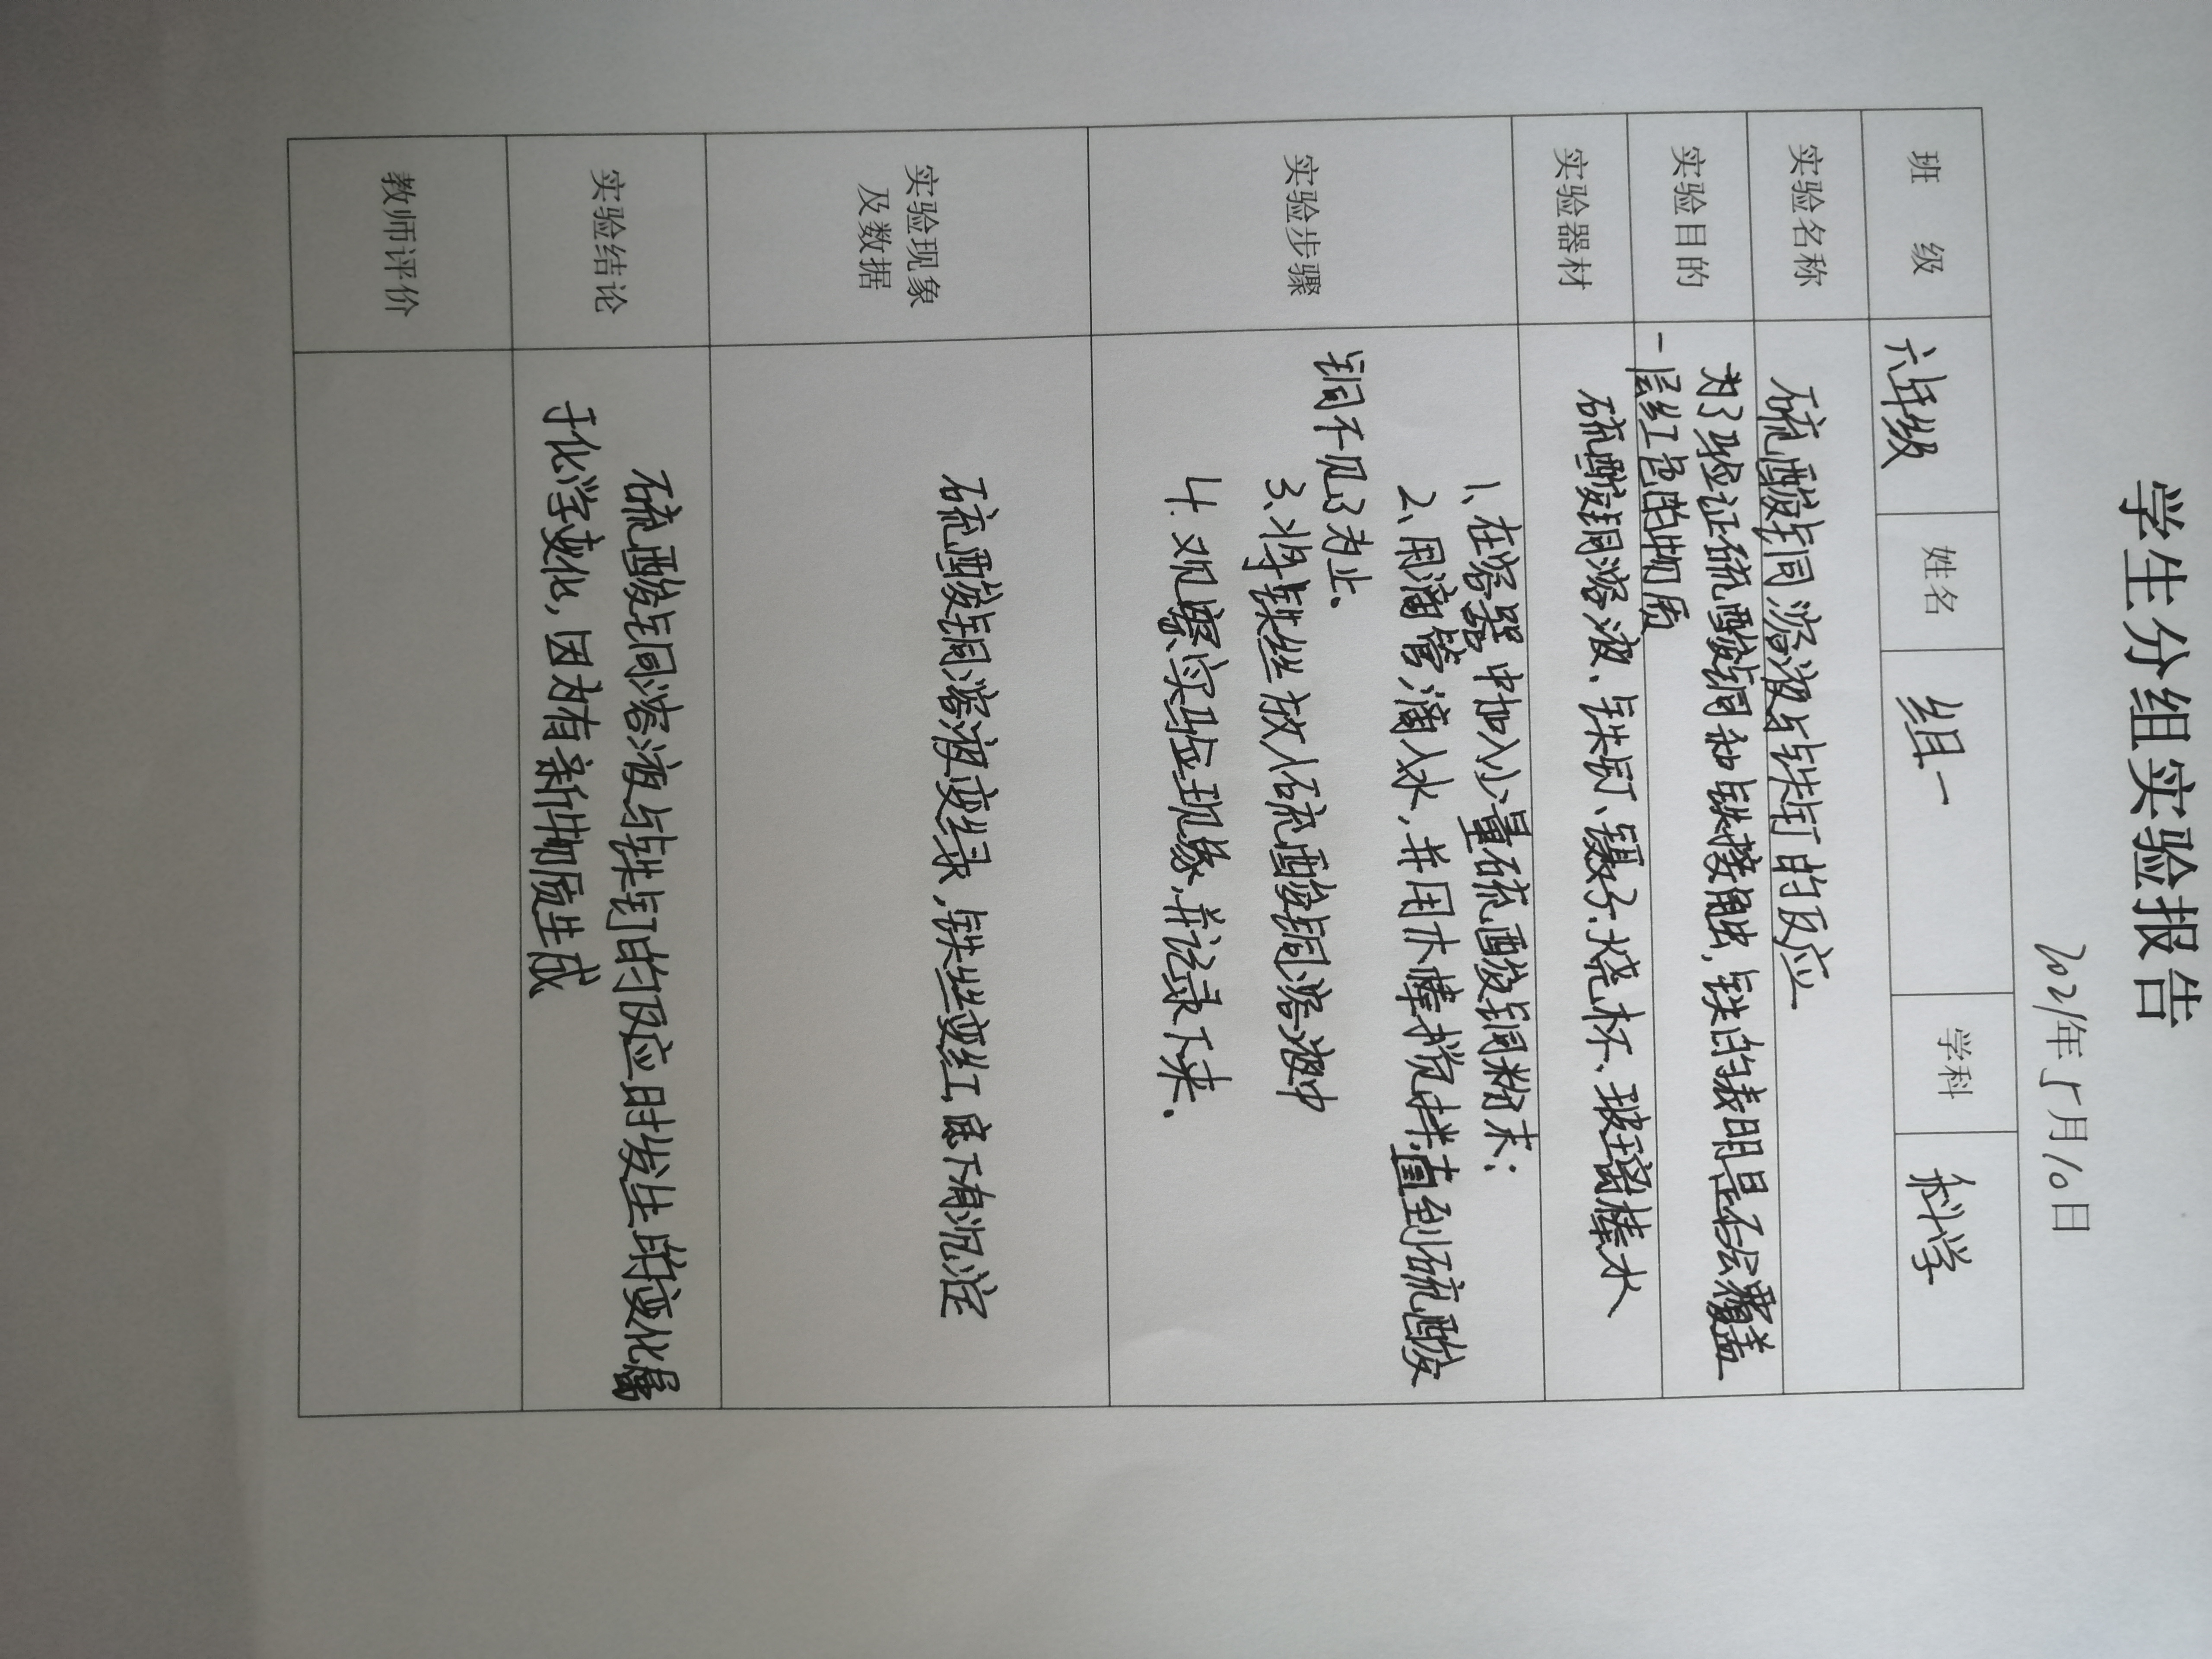 学生分组实验报告
2021年5月10日
班 级 六年级 姓名 组一 学科 科学
实验名称 硫酸铜溶液与铁钉的反应
实验目的 为了验证硫酸铜和铁接触,铁的表明是否会覆盖
一层红色的物质
实验器材 硫酸铜溶液、铁钉、镊子、烧杯、玻璃棒水
实验步骤
1、在容器中加入少量硫酸铜粉末;
2、用滴管滴入水,并用木棒搅拌直到硫酸
铜不见了为止、
3、将铁丝放入硫酸铜溶液中
4.观察实验现象,并记录下来.
实验现象
及数据
硫酸铜溶液变绿,铁丝变红,底下有沉淀
实验结论
硫酸铜溶液与铁钉的反应时发生的变化属
于化学变化,因为有新物质生成
教师评价